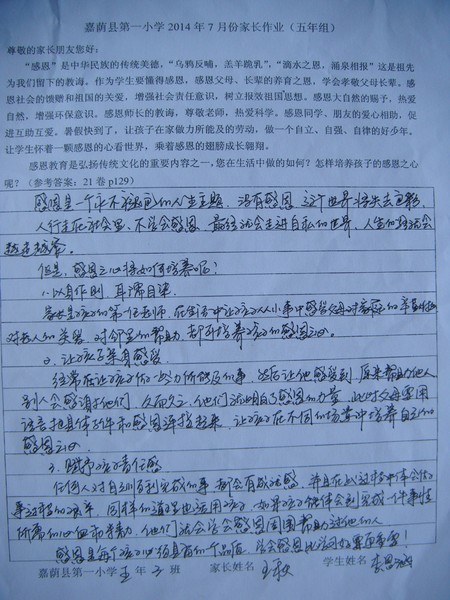 嘉荫县第一小学 2014 年 7 月份家长作业（五年组）
尊敬的家长朋友您好：
“感恩”是中华民族的传统美德，“乌鸦反哺，羔羊跪乳”，“滴水之恩，涌泉相报”这是祖先
为我们留下的教诲，作为学生要懂得感恩，感恩父母、长辈的养育之恩，学会孝敬父母长辈。感
恩社会的馈赠和祖国的关爱，增强社会责任意识，树立报效祖国思想。感恩大自然的赐予，热爱
自然，增强环保意识。感恩师长的教诲，尊敬老师，热爱科学。感恩同学、朋友的爱心相助，促
进互助互爱。暑假快到了，让孩子在家做力所能及的劳动，做一个自立、自强、自律的好少年。
让学生怀着一颗感恩的心看世界，乘着感恩的翅膀成长翱翔。
感恩教育是弘扬传统文化的重要内容之一，您在生活中做的如何？怎样培养孩子的感恩之心
呢？（参考答案：21 卷 p129）
感恩是一个永不褪色的人生主题，没有感恩，这个世界将失去色彩，
人行走在社会里，不学会感恩，最终就会走进自私的世界，人生的路就会
越走越窄。
但是，感恩之心将如何培养呢？
1、以身作则，耳濡目染
家长是孩子的第一任老师，在生活中让孩子从小事中感受父母对家庭的
对老人的关爱，对邻里的帮助，都可培养孩子的感恩之心。
2、让孩子亲身感受
经常在让孩子做一些力所能及的事，然后让他感受到，原来帮助他人
别人会感谢他们，久而久之，他们就明白了感恩的力量，此时父母要用
语言把具体事件和感恩连接起来，让孩子在不同的场景中培养自己的
感恩之心
3、赋予孩子责任感
任何人对自己顺利完成的事，都会有成就感，并且在此过程中体会做
事过程的艰辛，同样的道理也适用孩子，如果孩子能体会到完成一件事情
所需的心血和努力，他们就会学会感恩周围帮助过他们的人
感恩是每个孩子必须具有的一个品格，学会感恩比学习好更重要！
嘉荫县第一小学 五 年 3 班 家长姓名 王 学生姓名 李